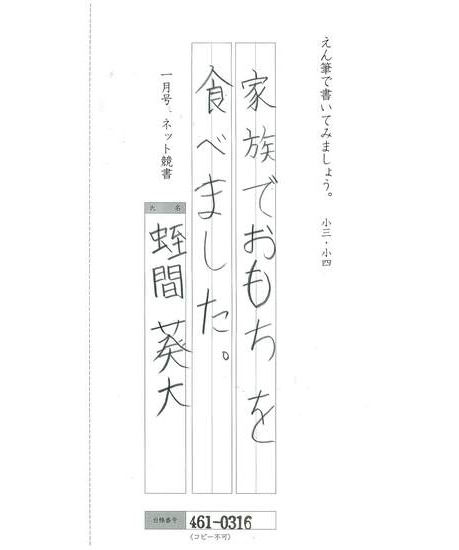 えん筆で書いてみましょう。 小三・小四
家族でおもちを
食べました。
一月号、ネット競書
氏名
蛭間葵大
合格番号
461-0316
(コピー不可)